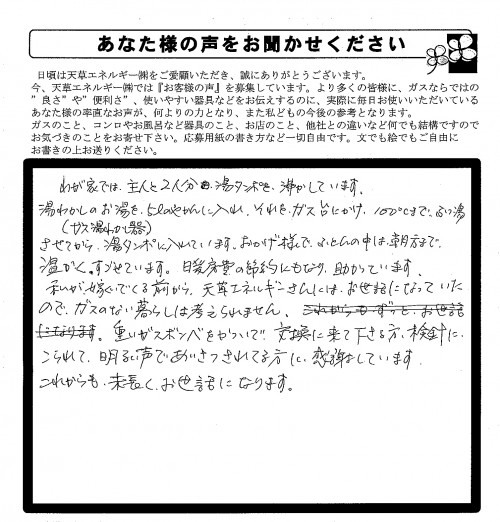 あなた様の声をお聞かせください
日頃は天草エネルギー㈱をご愛顧いただき、誠にありがとうございます。
今、天草エネルギー㈱では『お客様の声』を募集しています。より多くの皆様に、ガスならではの
”良さ”や”便利さ”、使いやすい器具などをお伝えするのに、実際に毎日お使いいただいている
あなた様の率直なお声が、何よりの力となり、また私どもの今後の参考となります。
ガスのこと、コンロやお風呂など器具のこと、お店のこと、他社との違いなど何でも結構ですので
お気づきのことをお寄せ下さい。応募用紙の書き方など一切自由です。文でも絵でもご自由に
お書きの上お送りください。
わが家では、主人と2人分の湯タンポを、沸かしています。
湯わかしのお湯を、5ℓのやかんに入れ、それを、ガスにかけ、100℃まで、ふっ湯
(ガス湯わかし器)
させてから、湯タンポに入れています。おかげ様で、ふとんの中は、朝方まで、
温かく、すごせています。日暖房費の節約にもなり、助かっています。
私が嫁いでくる前から、天草エネルギーさんには、お世話になっていた
ので、ガスのない暮らしは考えられません。これからも、ずっと、お世話
になります。重いガスボンベをかついで、交換に来て下さる方、検針に
こられて、明るい声であいさつされてる方に、感謝しています。
これからも、末長く、お世話になります。